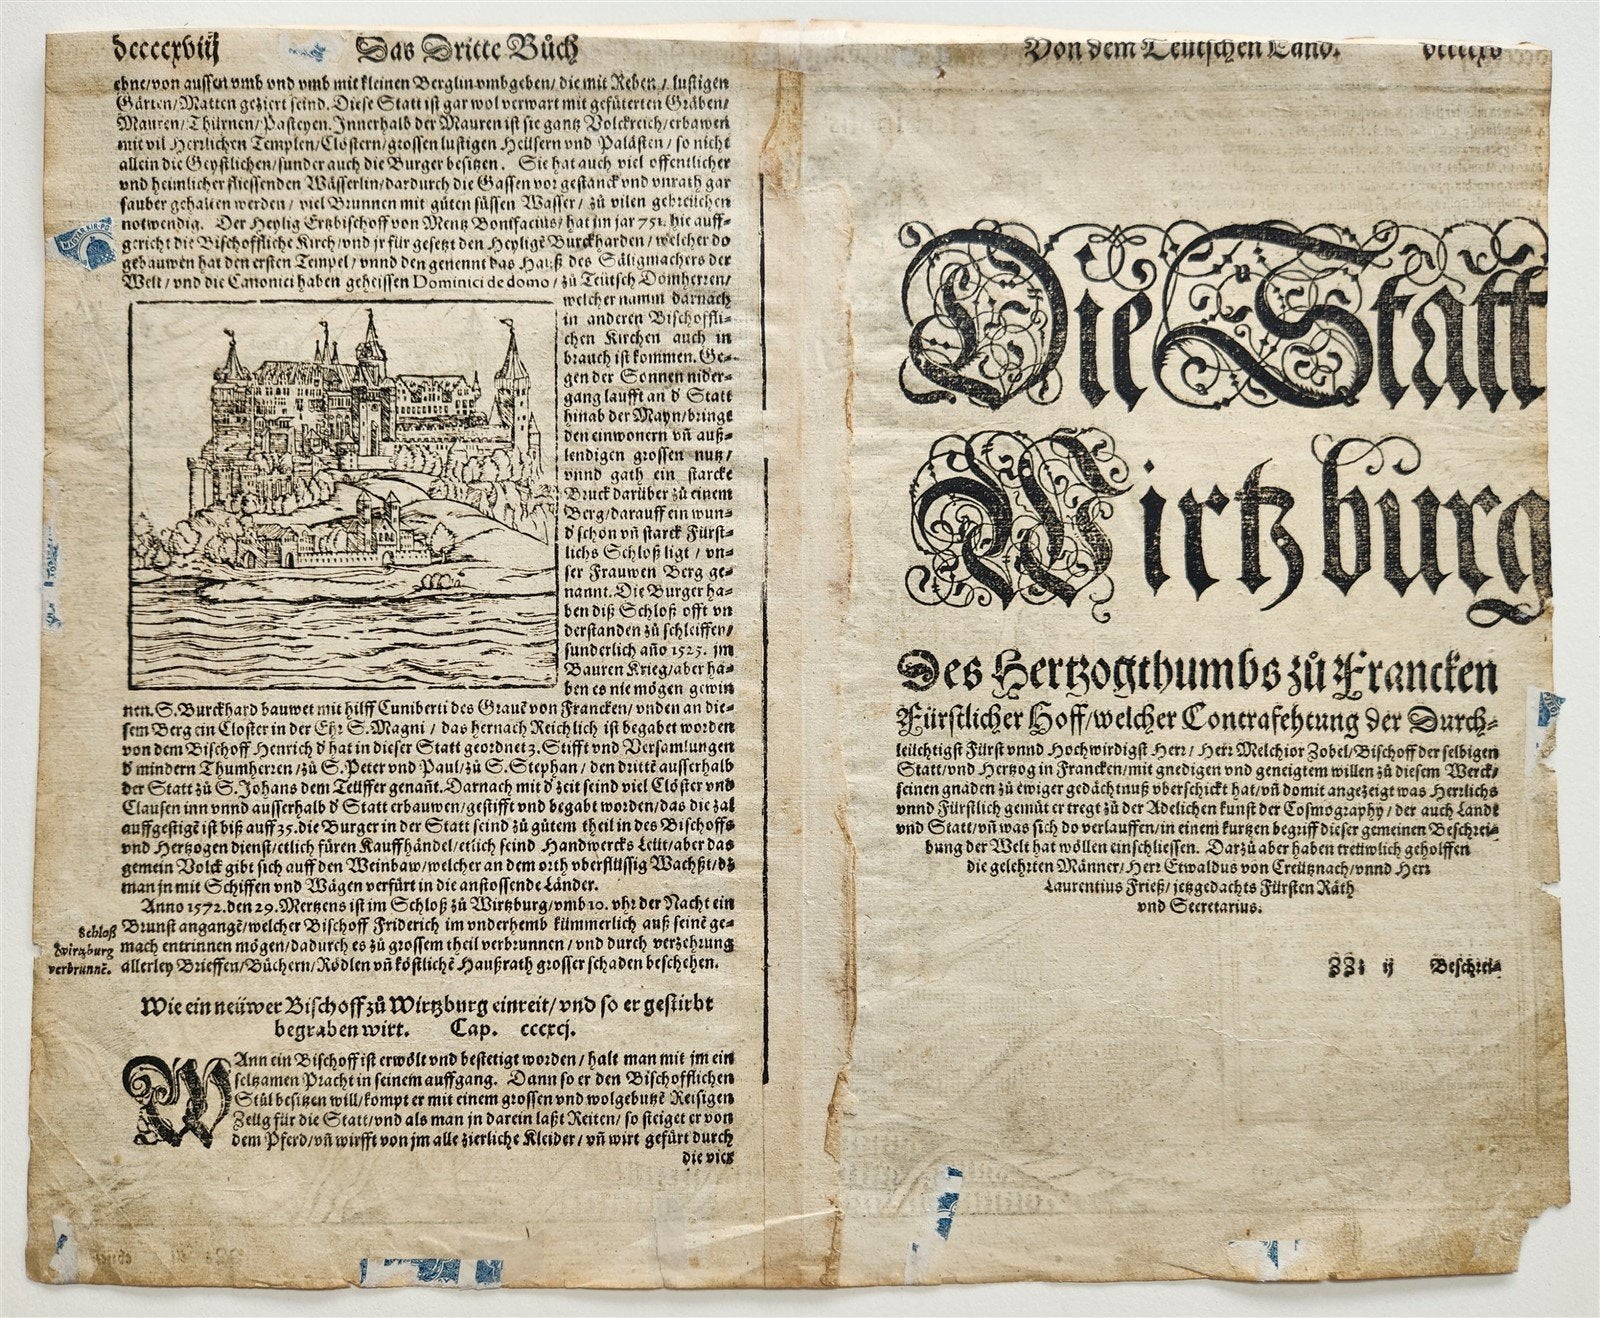 dccccxviij Das Dritte Bůch
ebne/von aussen vmb vnd vmb mit kleinen Berglin vmbgeben/die mit Reben/lustigen
Gärten/Matten geziert seind. Diese Statt ist gar wol verwart mit gefüterten Gräben/
Mauren/Thürnen/Pasteyen. Innerhalb der Mauren ist sie gantz Volckreich/erbawen
mit vil Herrlichen Templen/Clöstern/grossen lustigen Heüsern vnd Palästen/so nicht
allein die Geystlichen/sunder auch die Burger besitzen. Sie hat auch viel offentlicher
vnd heimlicher fliessenden Wässerlin/dardurch die Gassen vor gestanck vnd vnrath gar
sauber gehalten werden/viel Brunnen mit gůten süssen Wasser/zů vilen gebreüchen
notwendig. Der Heylig Ertzbischoff von Mentz Bonifacius/hat im jar 751. hie auff-
gericht die Bischoffliche Kirch/vnd jr für gesetzt den Heyligē Burckharden/welcher do
gebauwen hat den ersten Tempel/vnnd den genennt das Hauß des Säligmachers der
Welt/vnd die Canonici haben geheissen Dominici de domo/zů Teütsch Domherren/
welcher namm darnach
in anderen Bischoffli-
chen Kirchen auch in
brauch ist kommen. Ge-
gen der Sonnen nider-
gang laufft an d' Statt
hinab der Mayn/bringt
den einwonern vñ auß-
lendigen grossen nutz/
vnnd gath ein starcke
Bruck darüber zů einem
Berg/darauff ein wun-
d'schön vñ starck Fürst-
lichs Schloß ligt/vn-
ser Frauwen Berg ge-
nannt. Die Burger ha-
ben diß Schloß offt vn
derstanden zů schleiffen/
sunderlich año 1525. im
Bauren Krieg/aber ha-
ben es nie mögen gewin
nen. S. Burckhard bauwet mit hilff Cuniberti des Grauē von Francken/vnden an die-
sem Berg ein Closter in der Ehr S. Magni/das hernach Reichlich ist begabet worden
von dem Bischoff Henrich d' hat in dieser Statt geordnet 3. Stifft vnd Versamlungen
d' mindern Thumherren/zů S. Peter vnd Paul/zů S. Stephan/den drittē ausserhalb
der Statt zů S. Johans dem Teüffer genañt. Darnach mit d' zeit seind viel Clöster vnd
Clausen inn vnnd ausserhalb d' Statt erbauwen/gestifft vnd begabt worden/das die zal
auffgestigē ist biß auff 35. die Burger in der Statt seind zů gůtem theil in des Bischoffs
vnd Hertzogen dienst/etlich füren Kauffhändel/etlich seind Handwercks Leüt/aber das
gemein Volck gibt sich auff den Weinbaw/welcher an dem orth vberflüssig Wachßt/dz
man jn mit Schiffen vnd Wägen verfürt in die anstossende Länder.
Anno 1572. den 29. Mertzens ist im Schloß zů Wirtzburg/vmb 10. vhr der Nacht ein
Brunst angangē/welcher Bischoff Friderich im vnderhemb kümmerlich auß seinē ge-
mach entrinnen mögen/dadurch es zů grossem theil verbrunnen/vnd durch verzehrung
allerley Brieffen/Büchern/Rödlen vñ köstlichē Haußrath grosser schaden beschehen.
Schloß
Wirtzburg
verbrunnē.
Wie ein neüwer Bischoff zů Wirtzburg einreit/vnd so er gestirbt
begraben wirt. Cap. cccxcj.
WAnn ein Bischoff ist erwölt vnd bestetigt worden/halt man mit jm ein
seltzamen Pracht in seinem auffgang. Dann so er den Bischofflichen
Stůl besitzen will/kompt er mit einem grossen vnd wolgebutzē Reisigen
Zeüg für die Statt/vnd als man jn darein laßt Reiten/so steiget er von
dem Pferd/vñ wirfft von jm alle zierliche Kleider/vñ wirt gefürt durch
die vier
Von dem Teütschen Land.
Die Statt
Wirtzburg
Des Hertzogthumbs zů Francken
Fürstlicher Hoff/welcher Contrafehtung der Durch-
leüchtigst Fürst vnnd Hochwirdigst Herr/Herr Melchior Zobel/Bischoff der selbigen
Statt/vnd Hertzog in Francken/mit gnedigen vnd geneigtem willen zů diesem Werck/
seinen gnaden zů ewiger gedächtnuß vberschickt hat/vñ domit angezeigt was Herrlichs
vnnd Fürstlich gemüt er tregt zů der Adelichen kunst der Cosmography/der auch Landt
vnd Statt/vñ was sich do verlauffen/in einem kurtzen begriff dieser gemeinen Beschrei-
bung der Welt hat wöllen einschliessen. Darzů aber haben trewlich geholffen
die gelehrten Männer/Herr Etwaldus von Creütznach/vnnd Herr
Laurentius Frieß/jetzgedachts Fürsten Räth
vnd Secretarius.
ij Beschrei-
MAGYAR KIR. PO